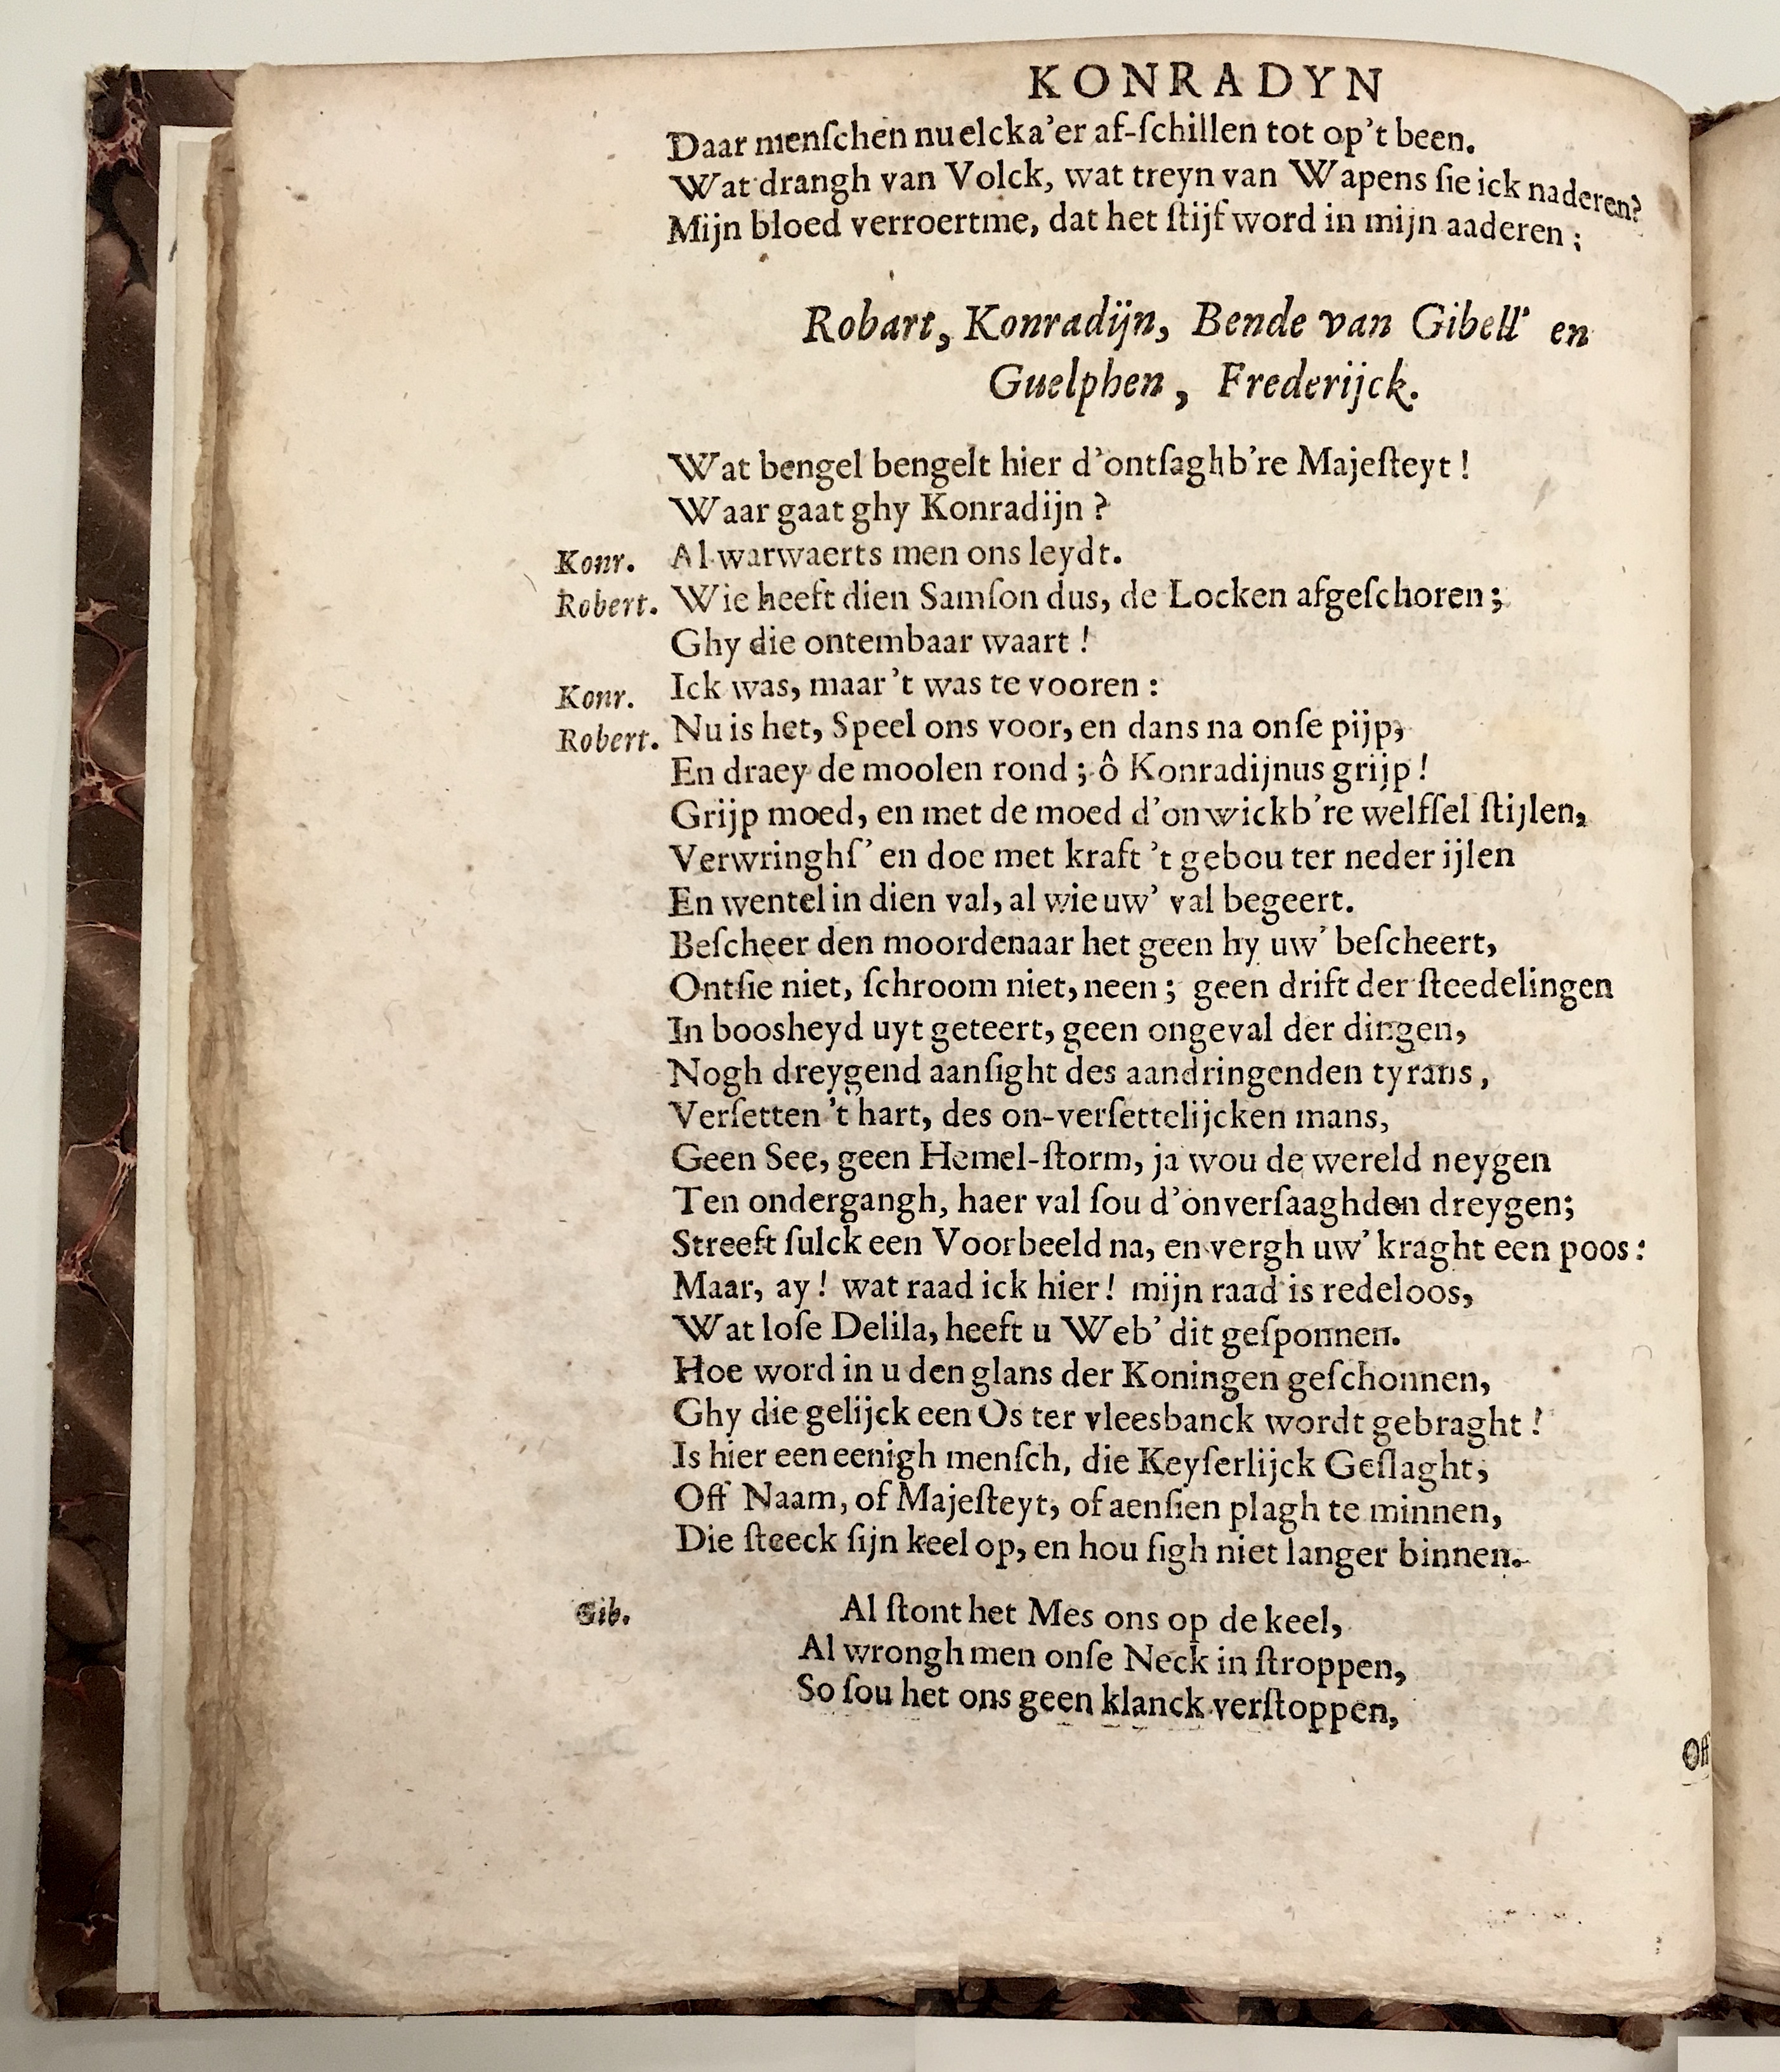 KONRADYN
Daar menſchen nu elcka'er af-ſchillen tot op't been.
Wat drangh van Volck, wat treyn van Wapens ſie ick naderen?
Mijn bloed verroertme, dat het ſtijf word in mijn aaderen;
Robart, Konradijn, Bende van Gibell' en
Guelphen, Frederijck.
Wat bengel bengelt hier d'ontſaghb're Majeſteyt!
Waar gaat ghy Konradijn?
Konr. Al warwaerts men ons leydt.
Robert. Wie heeft dien Samſon dus, de Locken afgeſchoren;
Ghy die ontembaar waart!
Konr. Ick was, maar 't was te vooren:
Robert. Nu is het, Speel ons voor, en dans na onſe pijp,
En draey de moolen rond; ô Konradijnus grijp!
Grijp moed, en met de moed d'onwickb're welfſel ſtijlen,
Verwringhſ' en doe met kraft 't gebou ter neder ijlen
En wentel in dien val, al wie uw' val begeert.
Beſcheer den moordenaar het geen hy uw' beſcheert,
Ontſie niet, ſchroom niet, neen; geen drift der ſteedelingen
In boosheyd uyt geteert, geen ongeval der dingen,
Nogh dreygend aanſight des aandringenden tyrans,
Verſetten 't hart, des on-verſettelijcken mans,
Geen See, geen Hemel-ſtorm, ja wou de wereld neygen
Ten ondergangh, haer val ſou d'onverſaaghden dreygen;
Streeft ſulck een Voorbeeld na, en vergh uw' kraght een poos:
Maar, ay! wat raad ick hier! mijn raad is redeloos,
Wat loſe Delila, heeft u Web' dit geſponnen.
Hoe word in u den glans der Koningen geſchonnen,
Ghy die gelijck een Os ter vleesbanck wordt gebraght!
Is hier een eenigh menſch, die Keyſerlijck Geſlaght,
Off Naam, of Majeſteyt, of aenſien plagh te minnen,
Die ſteeck ſijn keel op, en hou ſigh niet langer binnen.
Gib. Al ſtont het Mes ons op de keel,
Al wrongh men onſe Neck in ſtroppen,
So ſou het ons geen klanck verſtoppen,
Off